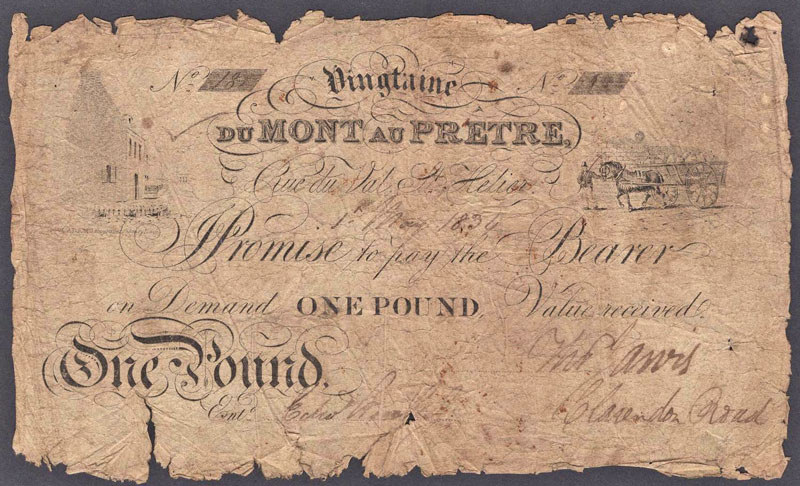 No. 18 Vingtaine No.
DU MONT AU PRETRE,
Rue du Val St. Helier
1st May 1834
I Promise to pay the Bearer
on Demand ONE POUND, Value received.
One Pound.
Thos.
Entd. Clarendon Road